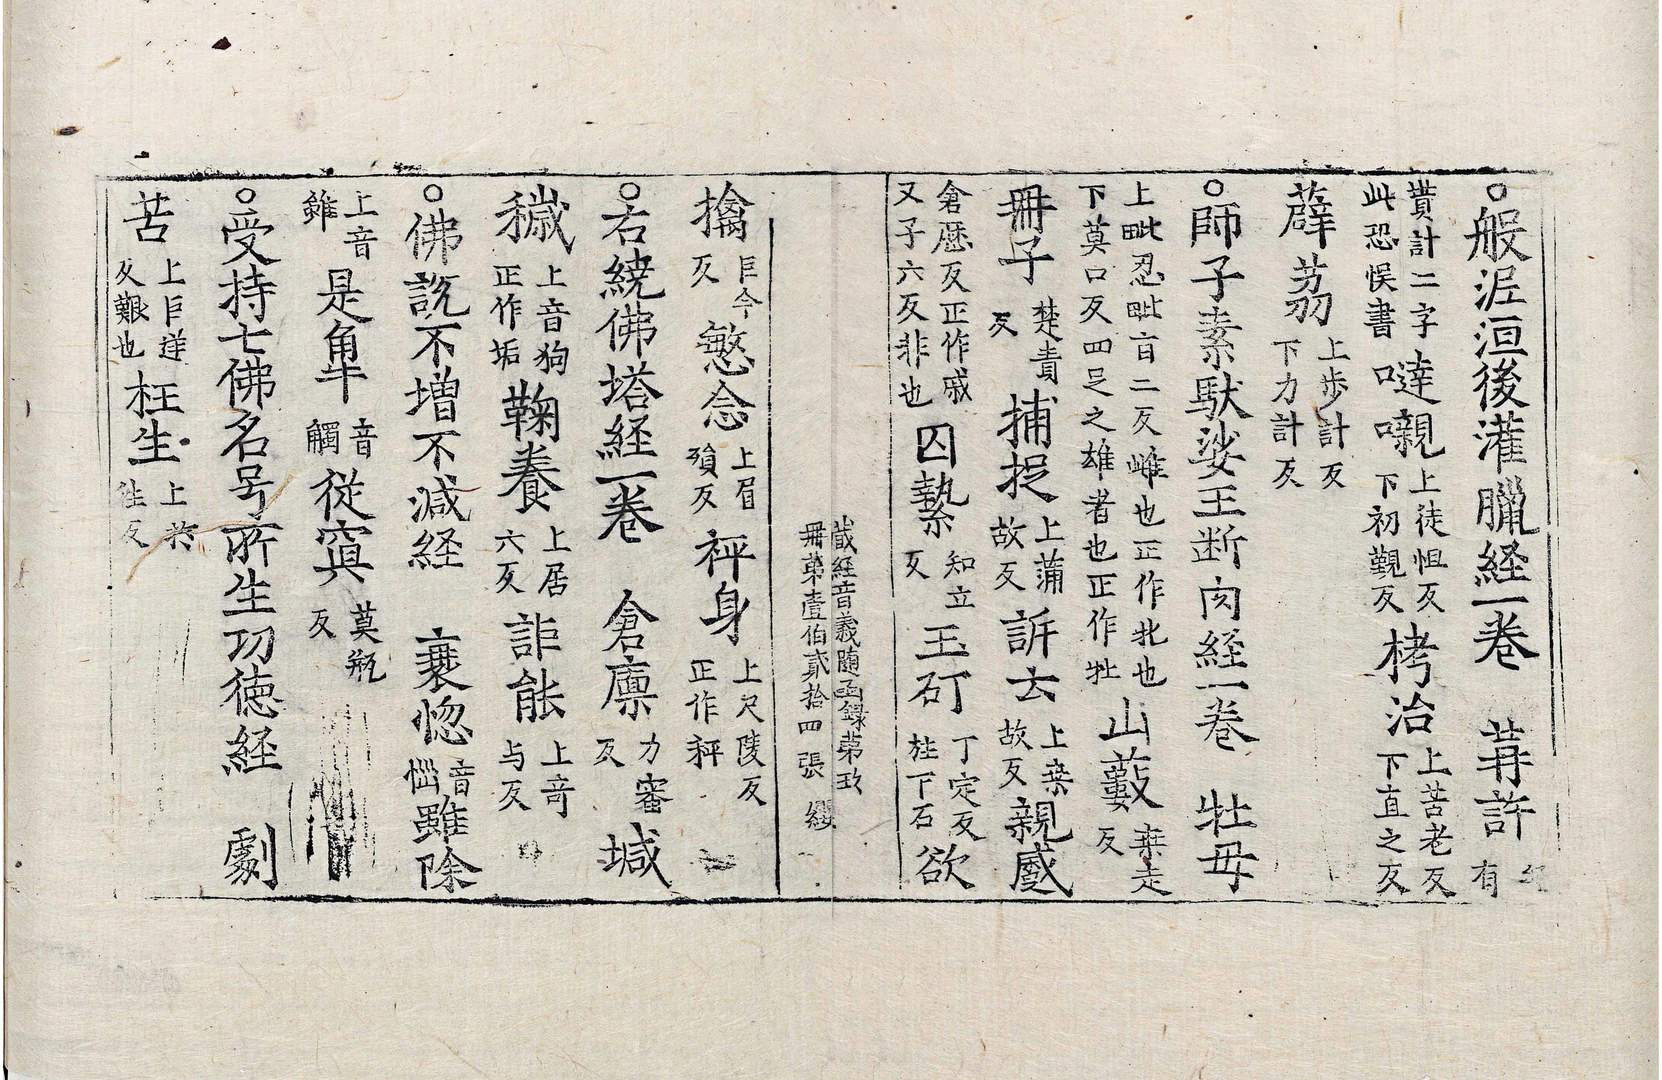 ○般泥洹後灌臘経一巻 苒許 有
蕡計二字達嚫上徒怛反栲治上苦老反
此恐悮書 下初覲反 下直之反
薜茘上步計反
下力計反
○師子素馱娑王断肉経一巻 牡毋
上毗忍毗盲二反雌也正作牝也山藪桒走
下莫口反四足之雄者也正作牡 反
冊子楚責捕捉上蒲訴去上桒親慼
反 故反 故反
倉歴反正作戚囚縶知立玉矴丁定反欲
又子六反非也 反 柱下石
蔵経音義随函録第玖
冊第壹伯貳拾四張 纓
擒巨今慜念上眉秤身上尺陵反
反 殞反 正作秤
○右繞佛塔経一巻 倉廪力審堿
反
穢上音狗鞠養上居詎能上奇
正作垢 六反 与反
○佛説不増不減経 衰惚音雖除
惱
上音是觕音從寘莫瓶
雖 觸 反
○受持七佛名号所生功徳経 劇
苦上巨逆枉生上
反艱也 徃反